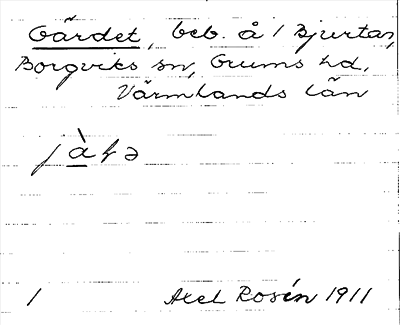 Gärdet, beb. å 1 Bjurtan,
Borgviks sn, Grums hd,
Värmlands län
1 Axel Rosén 1911